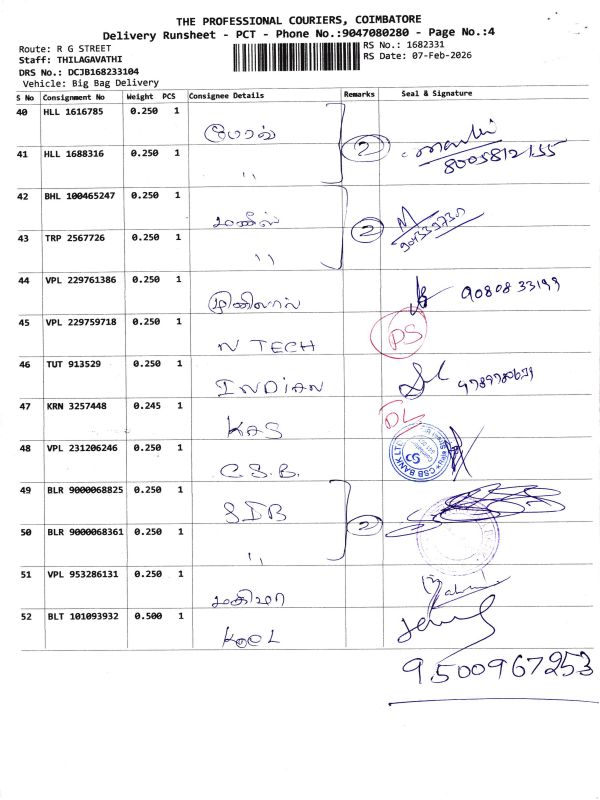 THE PROFESSIONAL COURIERS, COIMBATORE
Delivery Runsheet - PCT - Phone No.:9047080280 - Page No.:4
Route: R G STREET
Staff: THILAGAVATHI
DRS No.: DCJB168233104
Vehicle: Big Bag Delivery
RS No.: 1682331
RS Date: 07-Feb-2026
S No Consignment No Weight PCS Consignee Details Remarks Seal & Signature
40 HLL 1616785 0.250 1
2
41 HLL 1688316 0.250 1 " 8005812155
42 BHL 100465247 0.250 1
2
43 TRP 2567726 0.250 1 "
44 VPL 229761386 0.250 1 90808 33199
45 VPL 229759718 0.250 1 N TECH PS
46 TUT 913529 0.250 1 INDIAN
47 KRN 3257448 0.245 1 KAS DL
48 VPL 231206246 0.250 1 C.S.B. CSB BANK LTD
49 BLR 9000068825 0.250 1 SIB
2
50 BLR 9000068361 0.250 1 "
51 VPL 953286131 0.250 1 மகிமா
52 BLT 101093932 0.500 1 KOOL
9500967253